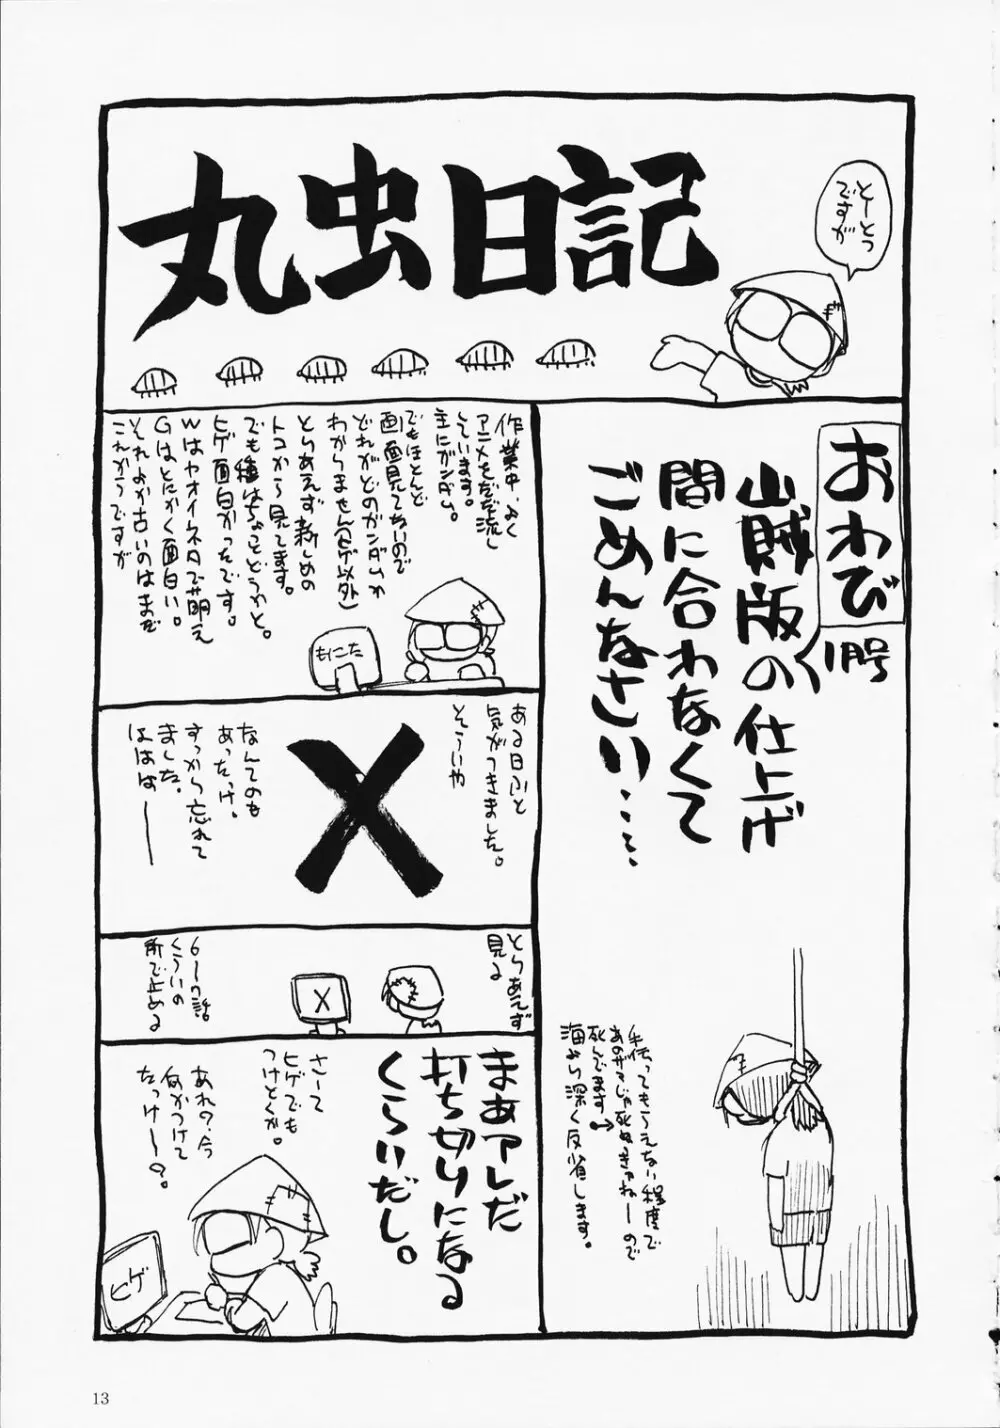 丸虫日記
とーとつ
ですが
おわび
1号
山賊版の仕上げ
間に合わなくて
ごめんなさい……
手伝ってもらえない程度で
あのザマじゃ死ぬきゃねーので
死んでます→
海より深く反省します。
作業中、よく
アニメをだだ流し
しています。
主にガンダム。
でもほとんど
画面見てないので
どれがどのガンダムか
わかりません(ヒゲ以外)
とりあえず新しめの
トコから見てます。
でも種はちょっとどうかと。
ヒゲ面白かったです。
Wはヤオイネタで萌え
Gはとにかく面白い。
それより古いのはまだ
これからですが
もにこた
ある日ふと
気がつきました。
そういや
X
なんてのも
あったっけ、
すっかり忘れて
ました。
ははは——
とりあえず
見る
X
6〜7話
くらいの
所で止める
まあアレだ
打ち切りになる
くらいだし。
さーて
ヒゲでも
つけとくか。
あれ?今
何かつけて
たっけー?
ヒゲ
13